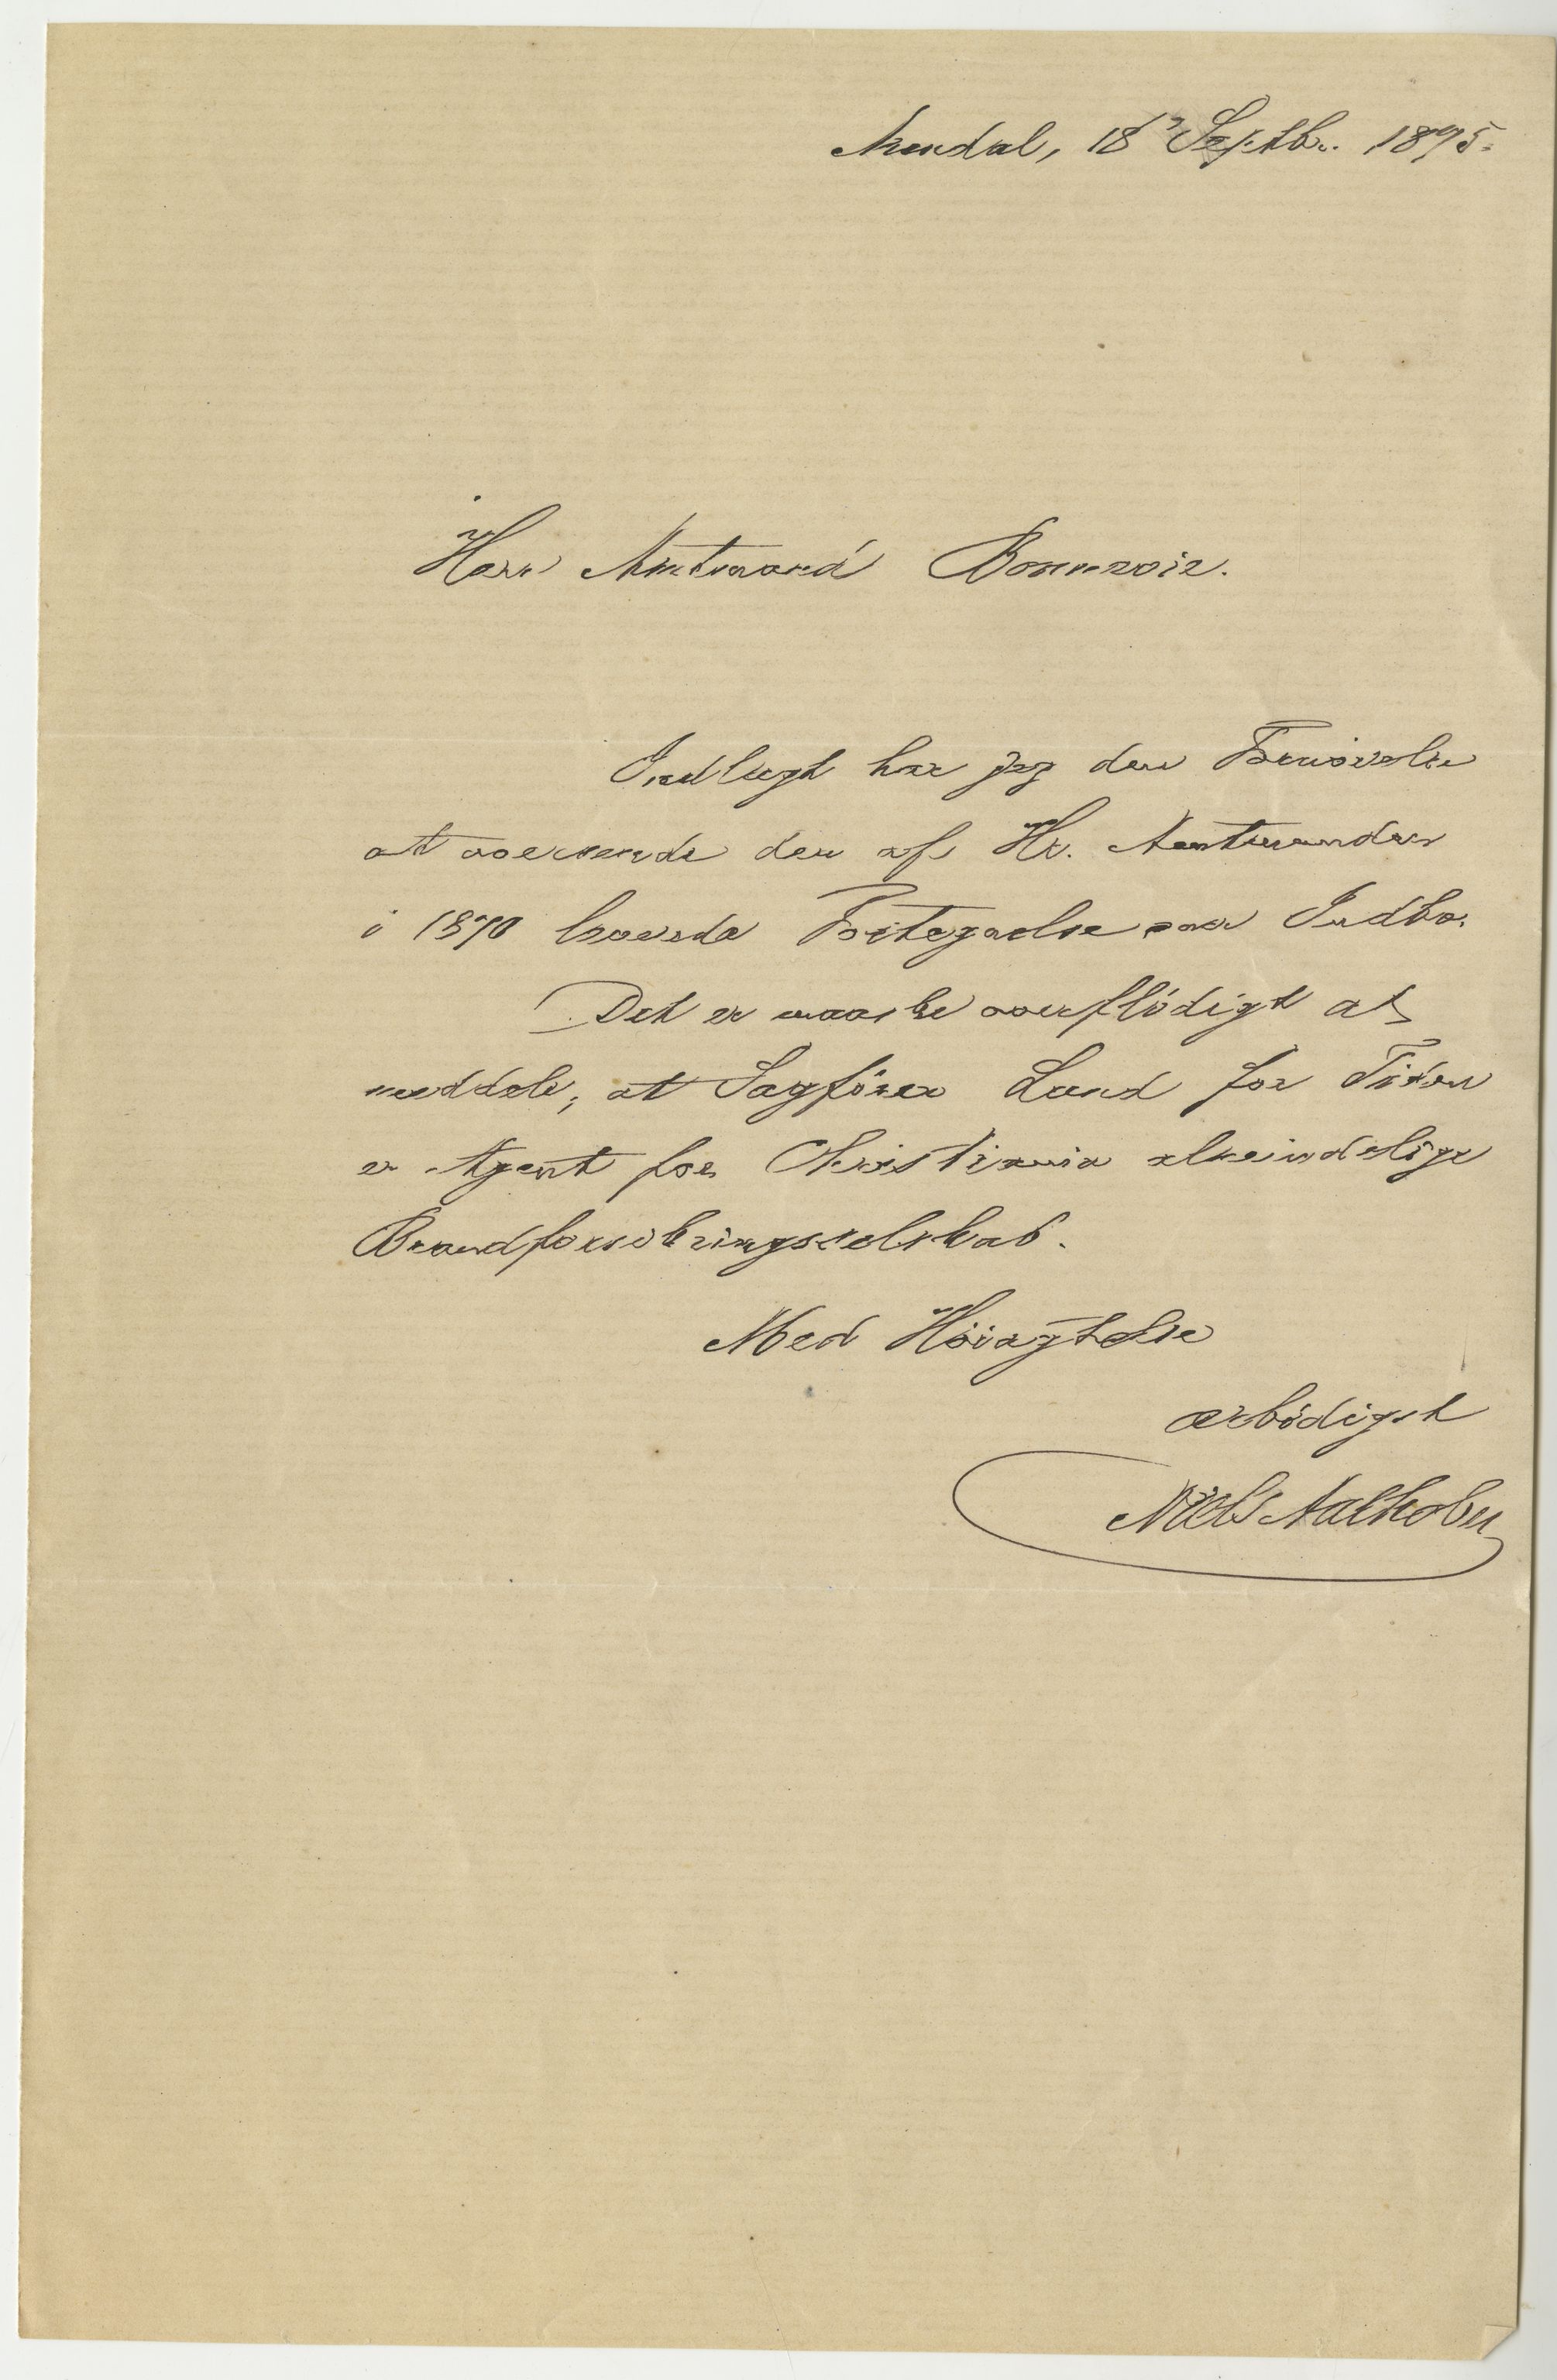 Arendal, 18' Septbr. 1895.
Herr Amtmand Bonnevie.
Indlagt har jeg den Fornöielse
at oversende den af Hr. Amtmanden
i 1870 Fortegnelse over Indbo.
Det er maaske overflödigt at
meddele, at Sagförer Lund for Tiden
er Agent for Christiania almindelige
Brandforsikringsselskab.
Med Höiagtelse
ærbödigst
Niels Aalholm